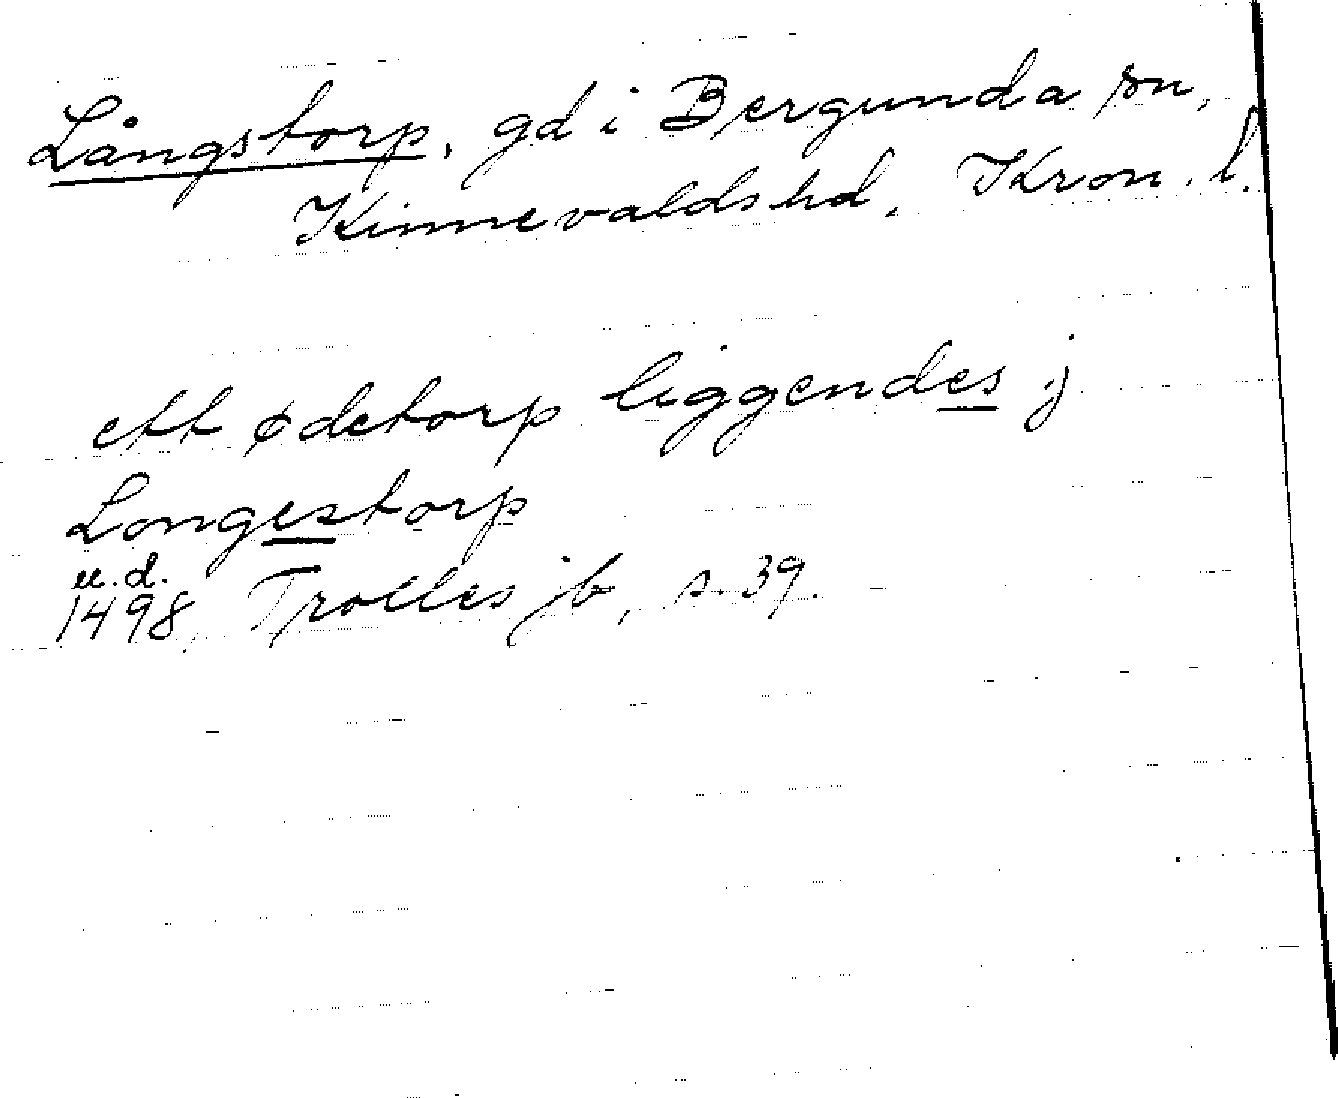 Långstorp, gd i Bergunda sn,
Kinnevaldshd, Kron. l.
ett ødetorp liggendes j
Longestorp
u.d.
1498, Trolles jb, s. 39.